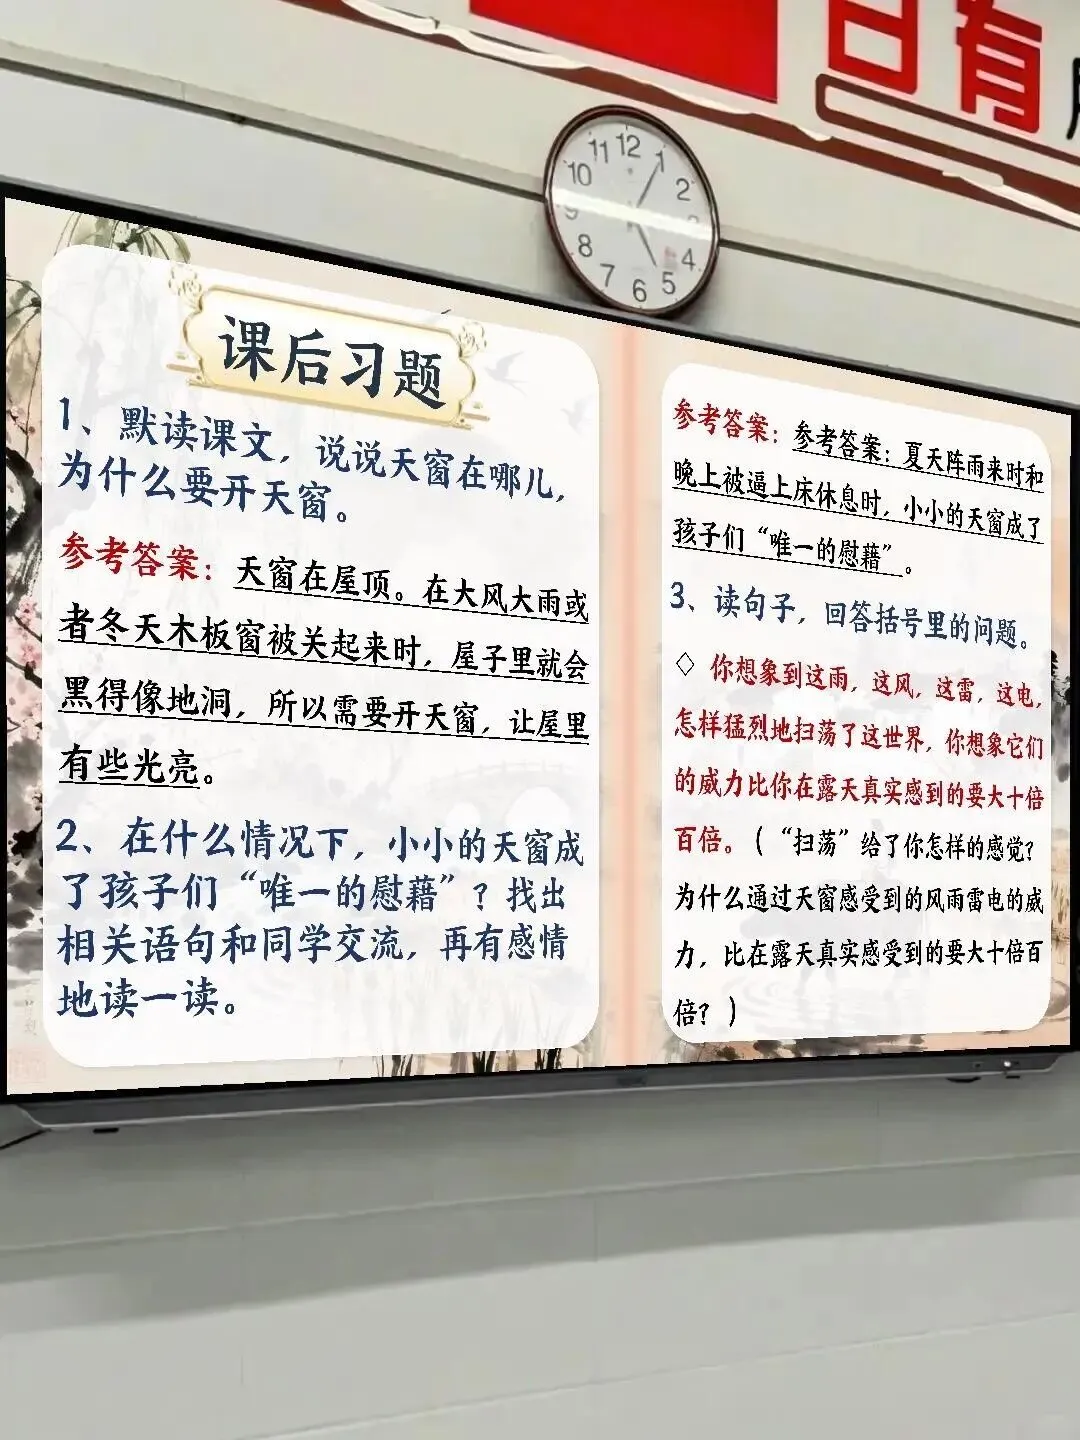 日有
12
1
2
3
4
5
6
7
8
9
10
11
课后习题
1、默读课文，说说天窗在哪儿，
为什么要开天窗。
参考答案：天窗在屋顶。在大风大雨或
者冬天木板窗被关起来时，屋子里就会
黑得像地洞，所以需要开天窗，让屋里
有些光亮。
2、在什么情况下，小小的天窗成
了孩子们“唯一的慰藉”？找出
相关语句和同学交流，再有感情
地读一读。
参考答案：参考答案：夏天阵雨来时和
晚上被逼上床休息时，小小的天窗成了
孩子们“唯一的慰藉”。
3、读句子，回答括号里的问题。
◇ 你想象到这雨，这风，这雷，这电，
怎样猛烈地扫荡了这世界，你想象它们
的威力比你在露天真实感到的要大十倍
百倍。（“扫荡”给了你怎样的感觉？
为什么通过天窗感受到的风雨雷电的威
力，比在露天真实感受到的要大十倍百
倍？）